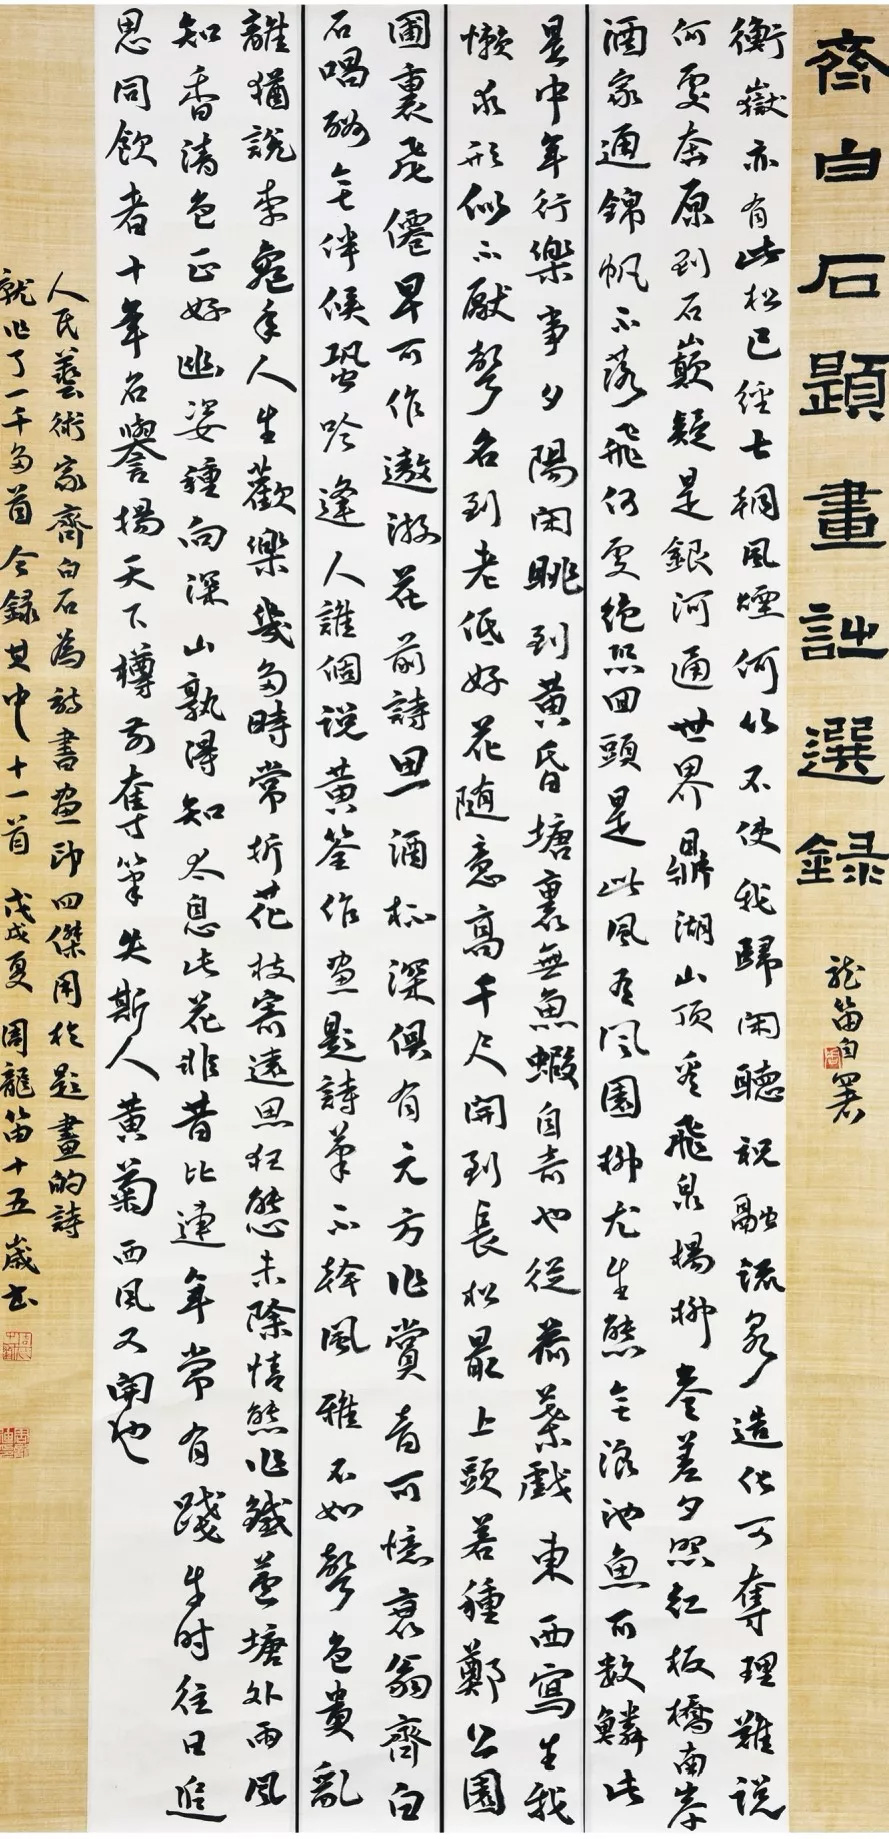 齊白石題畫詩選録
龍笛自署
衡嶽亦有此松已經七朝風煙何以不使我歸閑聽祝融流泉造化可奪理難説
何處奔原到石巔疑是銀河通世界鼎湖山頂看飛泉楊柳參差夕照紅板橋南岸
酒家通錦帆不落飛何處絶恐回頭是此風有風園柳尤生態無浪池魚可數鱗此
是中年行樂事夕陽閑眺到黄昏塘裏無魚蝦自奇也從荷葉戲東西寫生我
懶求形似不厭聲名到老低好花隨意高千尺開到長松最上頭若種鄭公園
圃裏飛僊早可作遨游花前詩思酒杯深俱有元方作賞音可憶衰翁齊白
石唱酬無伴候蛩吟逢人誰個説黄筌作畫題詩筆不幹風雅不如聲色貴亂
離猶説李龜年人生歡樂幾多時常折花枝寄遠思狂態未除情態作鐵蘆塘外雨風
知香清色正好幽姿種向深山孰得知太息此花非昔比連年常有踐牛時往日追
思同飲者十年名譽揚天下樽前奪筆失斯人黄菊西風又開也
人民藝術家齊白石為詩書畫印四傑用於題畫的詩
就作了一千多首今録其中十一首戊戌夏周龍笛十五歲書